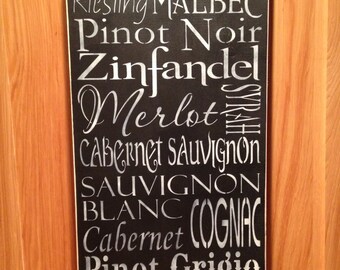 Riesling MALBEC
Pinot Noir
Zinfandel
Merlot SYRAH
CABERNET SAUVIGNON
SAUVIGNON
BLANC COGNAC
Cabernet
Pinot Grigio